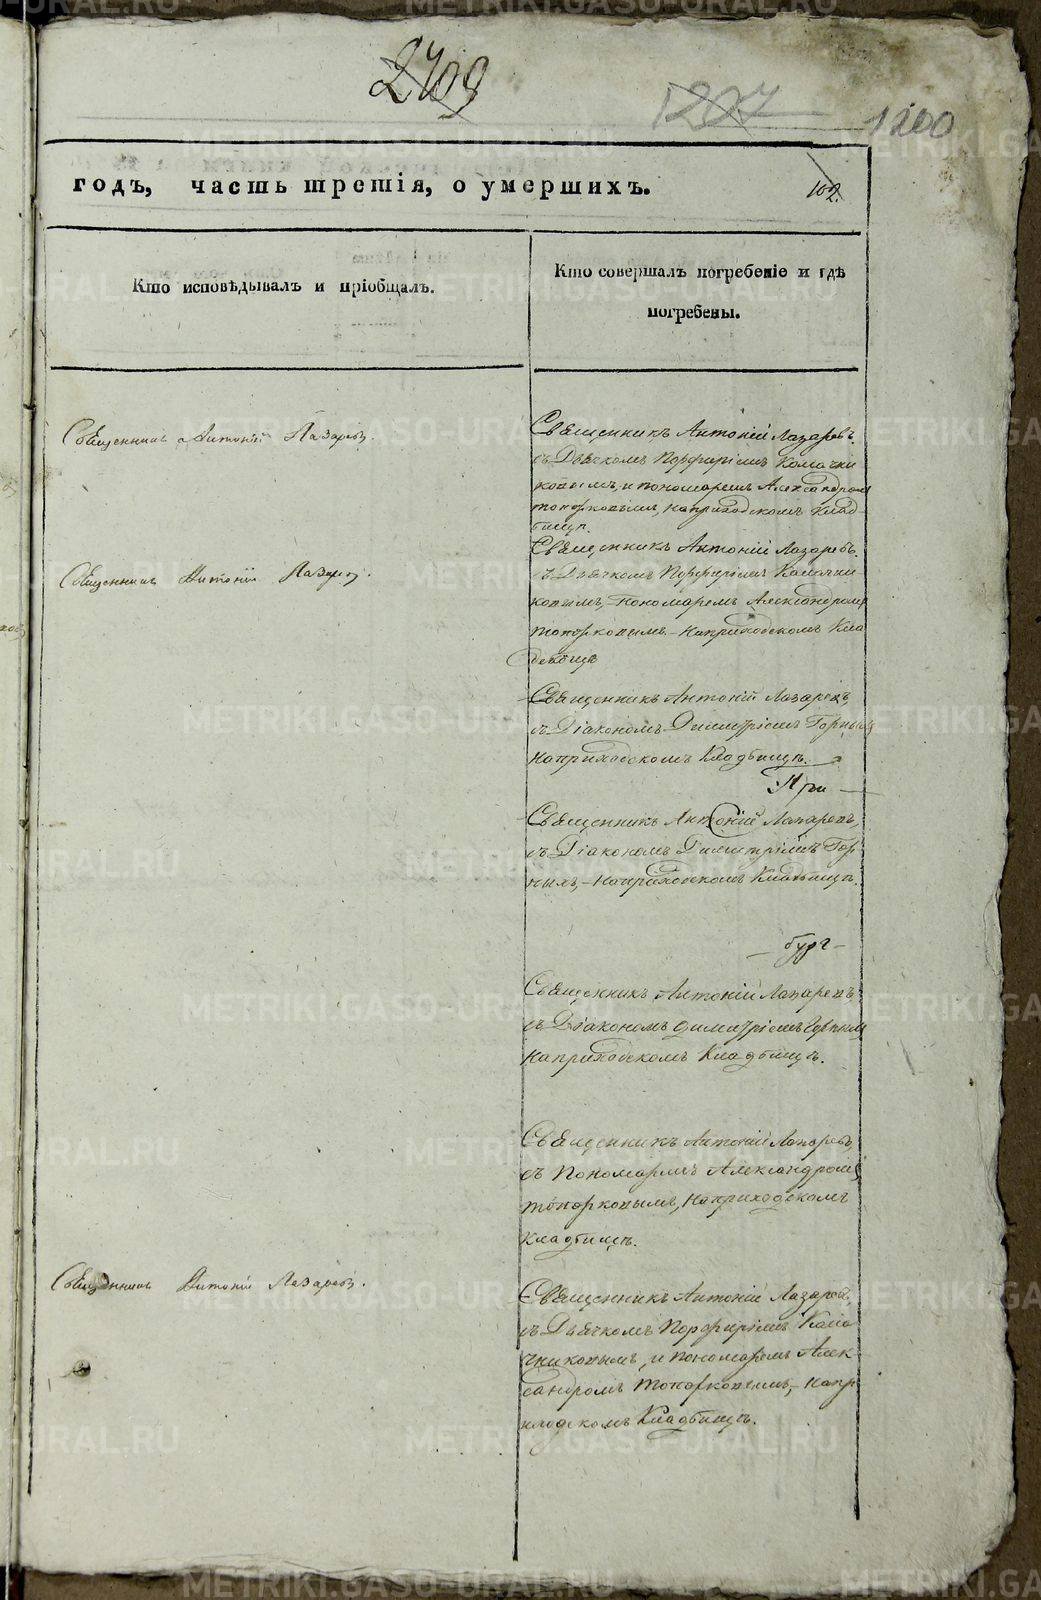 2709
1207
1200
годъ, часть третія, о умершихъ.
102.
Кто исповѣдывалъ и пріобщалъ.
Кто совершалъ погребеніе и гдѣ
погребены.
Священникъ Антоній Лазаревъ.
Священникъ Антоній Лазаревъ.
съ Дьячкомъ Порфиріемъ Калачни
ковымъ, и пономаремъ Александромъ
Топорковымъ, на приходскомъ клад-
бищѣ.
Священникъ Антоній Лазаревъ.
Священникъ Антоній Лазаревъ.
съ Дьячкомъ Порфиріемъ Калачни
ковымъ, Пономаремъ Александромъ
Топорковымъ. На приходскомъ Кла
дбищѣ
Священникъ Антоній Лазаревъ,
съ Діакономъ Димитріемъ Горнымъ
на приходскомъ Кладбищѣ.
При
Священникъ Антоній Лазаревъ,
съ Діакономъ Димитріемъ Гор
нымъ, На приходскомъ Кладбищѣ.
Священникъ Антоній Лазаревъ
съ Діакономъ Димитріемъ Горнымъ
на приходскомъ Кладбищѣ.
Священникъ Антоній Лазаревъ,
съ Пономаремъ Александромъ
Топорковымъ, на приходскомъ
Кладбищѣ.
Священникъ Антоній Лазаревъ.
Священникъ Антоній Лазаревъ,
съ Дьячкомъ Порфиріемъ Кала
чниковымъ, и пономаремъ Алек-
сандромъ Топорковымъ, на пр
иходскомъ Кладбищѣ.
METRIKI.GASO-URAL.RU